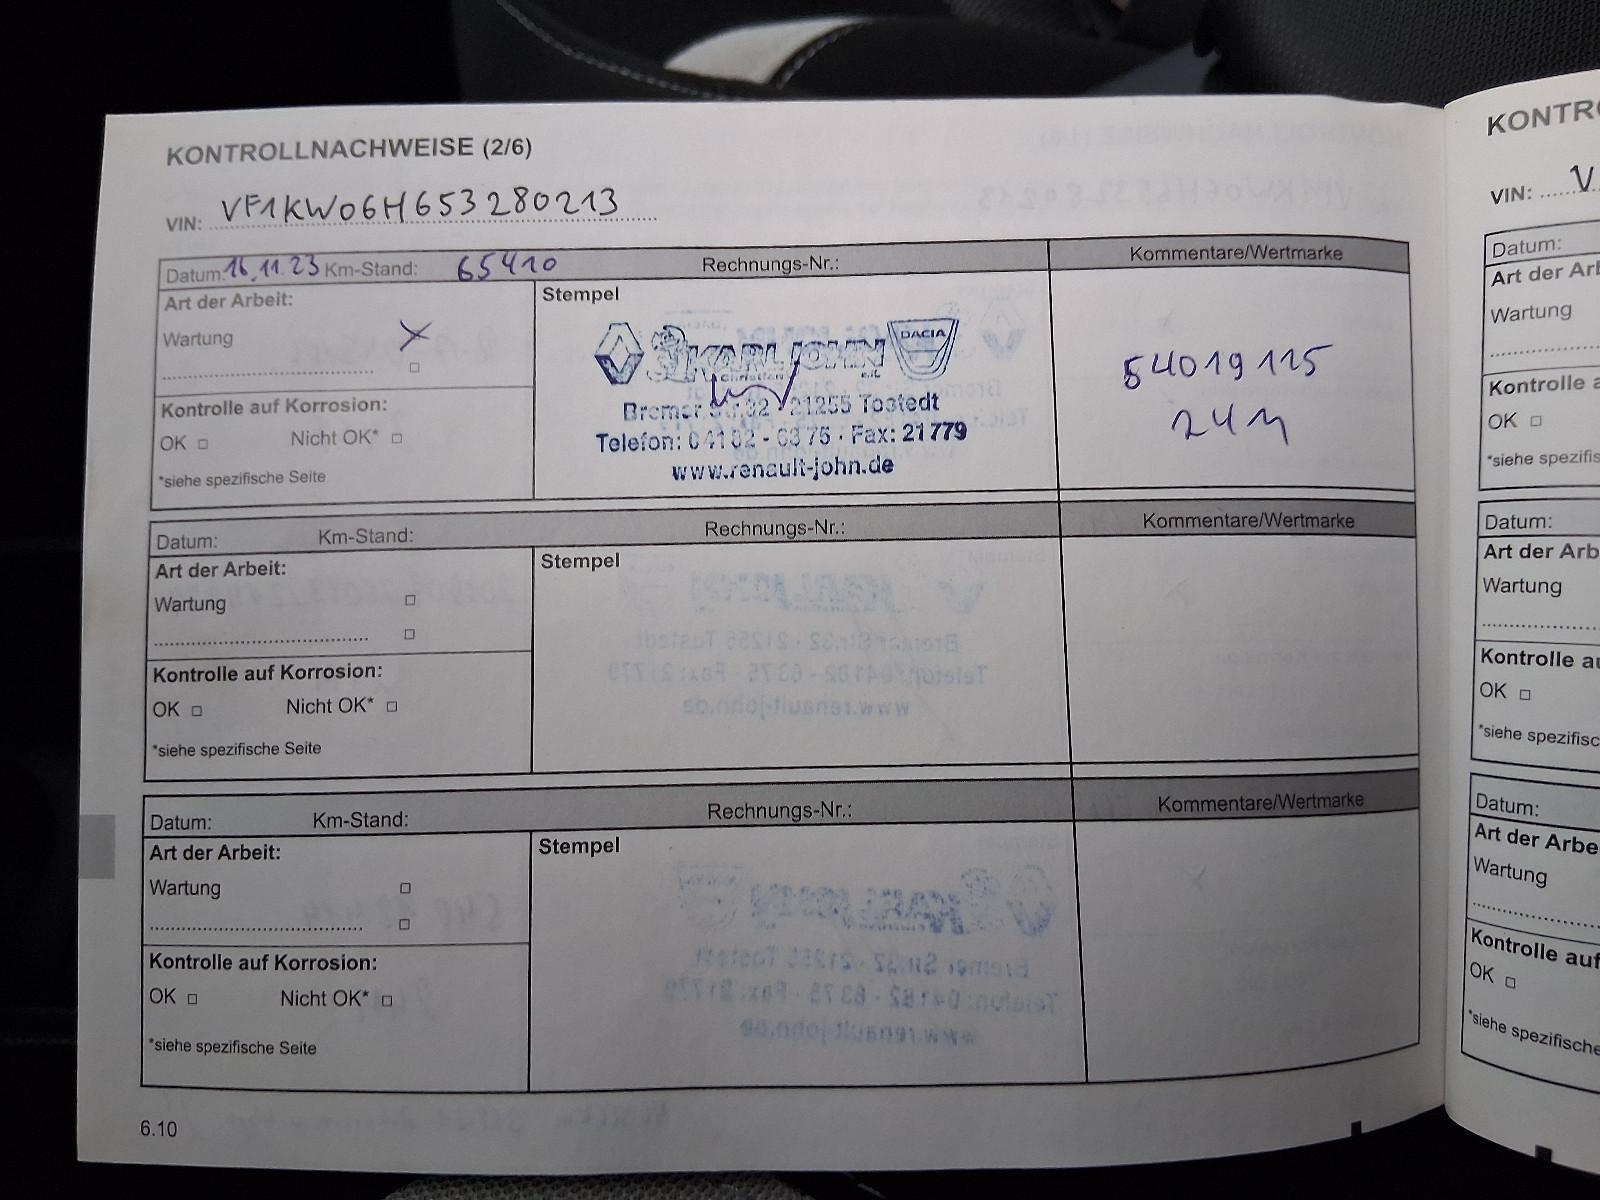 KONTROLLNACHWEISE (2/6)
VIN: VF1KW06H653280213
Datum: 16.11.23 Km-Stand: 65410 Rechnungs-Nr.: Kommentare/Wertmarke
Art der Arbeit:
Wartung
Kontrolle auf Korrosion:
OK Nicht OK*
*siehe spezifische Seite
Stempel
KARL JOHN DACIA
Christian e.K.
Bremer Str. 32 · 21255 Tostedt
Telefon: 04182 - 6375 · Fax: 21779
www.renault-john.de
54019115
24M
Datum: Km-Stand: Rechnungs-Nr.: Kommentare/Wertmarke
Art der Arbeit:
Wartung
Kontrolle auf Korrosion:
OK Nicht OK*
*siehe spezifische Seite
Stempel
Datum: Km-Stand: Rechnungs-Nr.: Kommentare/Wertmarke
Art der Arbeit:
Wartung
Kontrolle auf Korrosion:
OK Nicht OK*
*siehe spezifische Seite
Stempel
6.10
VIN: V
Datum:
Art der Ar
Wartung
Kontrolle a
OK
*siehe spezifis
Datum:
Art der Arb
Wartung
Kontrolle au
OK
*siehe spezifisc
Datum:
Art der Arbe
Wartung
Kontrolle auf
OK
*siehe spezifische